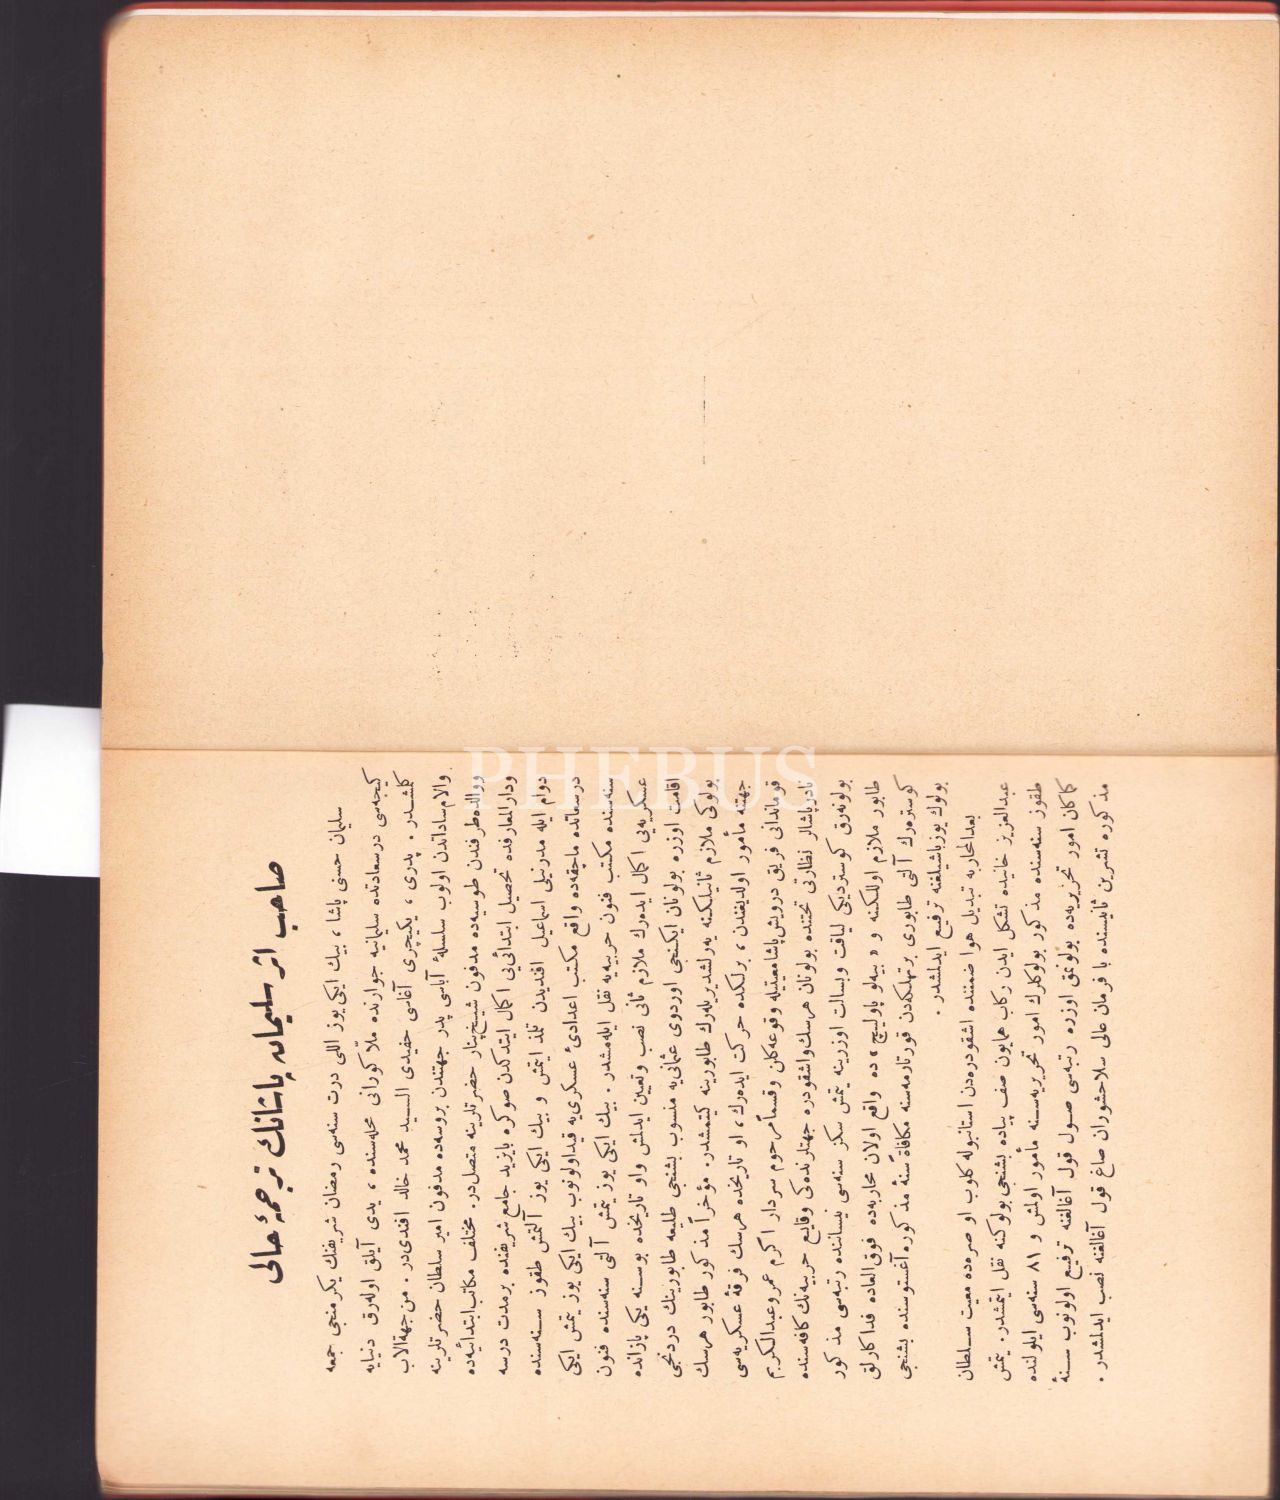 صاحب اثر سلیمان پاشانك ترجمۀ حالی
سلیمان حسنی پاشا ، بیك ایكی یوز اللی درت سنه‌سی رمضان شریفنك یكرمنجی جمعه
كیجه‌سی درسعادتده سلیمانیه جوارنده ملّا كورانی محله‌سنده ، یدی آیلق اوله‌رق دنیایه
كلشدر . پدری ، یكیچری آغاسی حفیدی السید محمد خالد افندی‌در . من جهة‌الاب
والام ساداتدن اولوب سلسلۀ آباسی پدر جهتندن بروسه‌ده مدفون امیر سلطان حضرتلرینه
ووالده‌طرفندن طوسیه‌ده مدفون شیخ‌پنار حضرتلرینه متصل‌در . مختلف مكاتب ابتدائیه‌ده
ودارالمعارفده تحصیل ابتدائی‌یی اكمال ایتدكدن صوكره بایزید جامع شریفنده برمدت درسه
دوام ایله مدرنیلی اسماعیل افندیدن تلمذ ایتمش و بیك ایكی یوز آلتمش طقوز سنه‌سنده
درسعادتده ماچقه‌ده واقع مكتب اعدادئ عسكری‌یه قیداولونوب بیك ایكی یوز یتمش ایكی
سنه‌سنده مكتب فنون حربیه‌یه نقل ایله‌مشدر . بیك ایكی یوز یتمش آلتی سنه‌سنده فنون
عسكریه‌یی اكمال ایده‌رك ملازم ثانی نصب وتعیین ایدلمش واو تاریخده بوسنه یكی پازارنده
اقامت اوزره بولونان ایكنجی اوردوی عثمانی‌یه منسوب بشنجی طلیعه طابورینك دردنجی
بولوكی ملازم ثانیلكنه یرلشدیریله‌رك طابورینه كیتمشدر . مؤخراً مذكور طابور هرسك
جهتنه مأمور اولدیغندن ، برلكده حركت ایده‌رك ، او تاریخده هرسك فرقۀ عسكریه‌سی
قوماندانی فریق درویش پاشا معیتیله وقوعه‌كلن وقسماً مرحوم سردار اكرم عمر وعبدالكریم
نادرپاشالر نظارتی تحتنده بولونان هرسك واشقودره جهتلرنده‌كی وقایع حربیه‌نك كافه‌سنده
بولونه‌رق كوستردیكی لیاقت وبسالت اوزرینه یتمش سكز سنه‌سی نیساننده رتبه‌سی مذكور
طابور ملازم اوللكنه و « بیه‌لو پاولیچ » ده واقع اولان محاربه‌ده فوق‌العاده فداكارلق
كوستره‌رك آلتی طابوری برتهلكه‌دن قورتارمه‌سنه مكافاةً سنۀ مذكوره آغستوسنده بشنجی
بولوك یوزباشیلغنه ترفیع ایدلمشدر .
بعدالمحاربه تبدیل هوا ضمننده اشقودره‌دن استانبوله كلوب او صره‌ده معیت سلطان
عبدالعزیز خانیده تشكل ایدن ركاب همایون صف پیاده بشنجی بولوكنه نقل ایتمشدر . یتمش
طقوز سنه‌سنده مذكور بولوكلرك امور تحریریه‌سنه مأمور اولمش و ٨١ سنه‌سی ایلولنده
كاكان امور تحریریه‌ده بولونمق اوزره رتبه‌سی صول قول آغالغنه ترفیع اولونوب سنۀ
مذكوره تشرین ثانیسنده با فرمان عالی سلاحشوران صاغ قول آغالغنه نصب ایدلمشدر .
PHEBUS